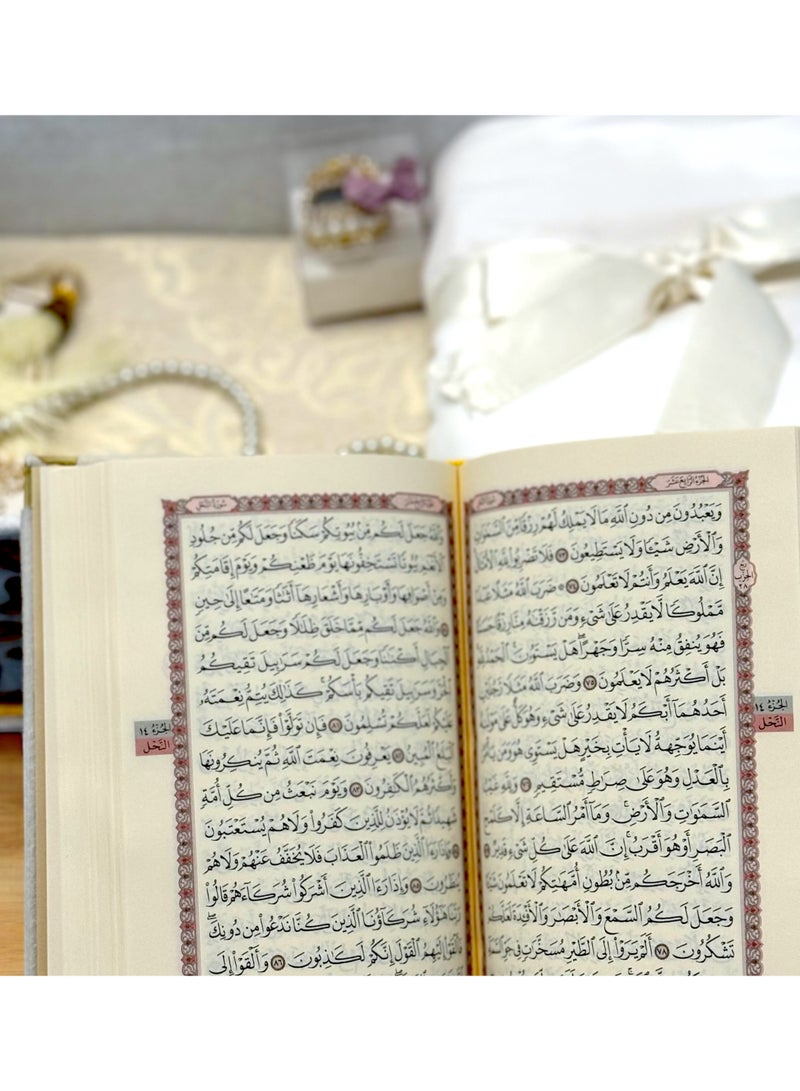 الجُزْءُ الرَّابِعَ عَشَرَ
وَيَعْبُدُونَ مِن دُونِ ٱللَّهِ مَا لَا يَمْلِكُ لَهُمْ رِزْقًا مِّنَ ٱلسَّمَٰوَٰتِ
وَٱلْأَرْضِ شَيْـًٔا وَلَا يَسْتَطِيعُونَ ٧٣ فَلَا تَضْرِبُوا۟ لِلَّهِ ٱلْأَمْثَالَ
إِنَّ ٱللَّهَ يَعْلَمُ وَأَنتُمْ لَا تَعْلَمُونَ ٧٤ ۞ ضَرَبَ ٱللَّهُ مَثَلًا عَبْدًا
مَّمْلُوكًا لَّا يَقْدِرُ عَلَىٰ شَىْءٍ وَمَن رَّزَقْنَٰهُ مِنَّا رِزْقًا حَسَنًا
فَهُوَ يُنفِقُ مِنْهُ سِرًّا وَجَهْرًا ۖ هَلْ يَسْتَوُۥنَ ۚ ٱلْحَمْدُ لِلَّهِ
بَلْ أَكْثَرُهُمْ لَا يَعْلَمُونَ ٧٥ وَضَرَبَ ٱللَّهُ مَثَلًا رَّجُلَيْنِ
أَحَدُهُمَآ أَبْكَمُ لَا يَقْدِرُ عَلَىٰ شَىْءٍ وَهُوَ كَلٌّ عَلَىٰ مَوْلَىٰهُ
أَيْنَمَا يُوَجِّههُّ لَا يَأْتِ بِخَيْرٍ ۖ هَلْ يَسْتَوِى هُوَ وَمَن يَأْمُرُ
بِٱلْعَدْلِ ۙ وَهُوَ عَلَىٰ صِرَٰطٍ مُّسْتَقِيمٍ ٧٦ وَلِلَّهِ غَيْبُ
ٱلسَّمَٰوَٰتِ وَٱلْأَرْضِ ۚ وَمَآ أَمْرُ ٱلسَّاعَةِ إِلَّا كَلَمْحِ
ٱلْبَصَرِ أَوْ هُوَ أَقْرَبُ ۚ إِنَّ ٱللَّهَ عَلَىٰ كُلِّ شَىْءٍ قَدِيرٌ
وَٱللَّهُ أَخْرَجَكُم مِّنۢ بُطُونِ أُمَّهَٰتِكُمْ لَا تَعْلَمُونَ شَيْـًٔا
وَجَعَلَ لَكُمُ ٱلسَّمْعَ وَٱلْأَبْصَٰرَ وَٱلْأَفْـِٔدَةَ ۙ لَعَلَّكُمْ
تَشْكُرُونَ ٧٨ أَلَمْ يَرَوْا۟ إِلَى ٱلطَّيْرِ مُسَخَّرَٰتٍ فِى جَوِّ
رُبع الحِزْب ٢٨
الجُزْءُ ١٤
النَّحْل
سُورَةُ النَّحْلِ
وَٱللَّهُ جَعَلَ لَكُم مِّنۢ بُيُوتِكُمْ سَكَنًا وَجَعَلَ لَكُم مِّن جُلُودِ
ٱلْأَنْعَٰمِ بُيُوتًا تَسْتَخِفُّونَهَا يَوْمَ ظَعْنِكُمْ وَيَوْمَ إِقَامَتِكُمْ
وَمِنْ أَصْوَافِهَا وَأَوْبَارِهَا وَأَشْعَارِهَآ أَثَٰثًا وَمَتَٰعًا إِلَىٰ حِينٍ
وَٱللَّهُ جَعَلَ لَكُم مِّمَّا خَلَقَ ظِلَٰلًا وَجَعَلَ لَكُم مِّنَ
ٱلْجِبَالِ أَكْنَٰنًا وَجَعَلَ لَكُمْ سَرَٰبِيلَ تَقِيكُمُ
ٱلْحَرَّ وَسَرَٰبِيلَ تَقِيكُم بَأْسَكُمْ ۚ كَذَٰلِكَ يُتِمُّ نِعْمَتَهُۥ
عَلَيْكُمْ لَعَلَّكُمْ تُسْلِمُونَ ٨١ فَإِن تَوَلَّوْا۟ فَإِنَّمَا عَلَيْكَ
ٱلْبَلَٰغُ ٱلْمُبِينُ ٨٢ يَعْرِفُونَ نِعْمَتَ ٱللَّهِ ثُمَّ يُنكِرُونَهَا
وَأَكْثَرُهُمُ ٱلْكَٰفِرُونَ ٨٣ وَيَوْمَ نَبْعَثُ مِن كُلِّ أُمَّةٍ
شَهِيدًا ثُمَّ لَا يُؤْذَنُ لِلَّذِينَ كَفَرُوا۟ وَلَا هُمْ يُسْتَعْتَبُونَ
وَإِذَا رَءَا ٱلَّذِينَ ظَلَمُوا۟ ٱلْعَذَابَ فَلَا يُخَفَّفُ عَنْهُمْ وَلَا هُمْ
يُنظَرُونَ ٨٥ وَإِذَا رَءَا ٱلَّذِينَ أَشْرَكُوا۟ شُرَكَآءَهُمْ قَالُوا۟
رَبَّنَا هَٰٓؤُلَآءِ شُرَكَآؤُنَا ٱلَّذِينَ كُنَّا نَدْعُوا۟ مِن دُونِكَ ۖ
فَأَلْقَوْا۟ إِلَيْهِمُ ٱلْقَوْلَ إِنَّكُمْ لَكَٰذِبُونَ ٨٦ وَأَلْقَوْا۟ إِلَى
الجُزْءُ ١٤
النَّحْل